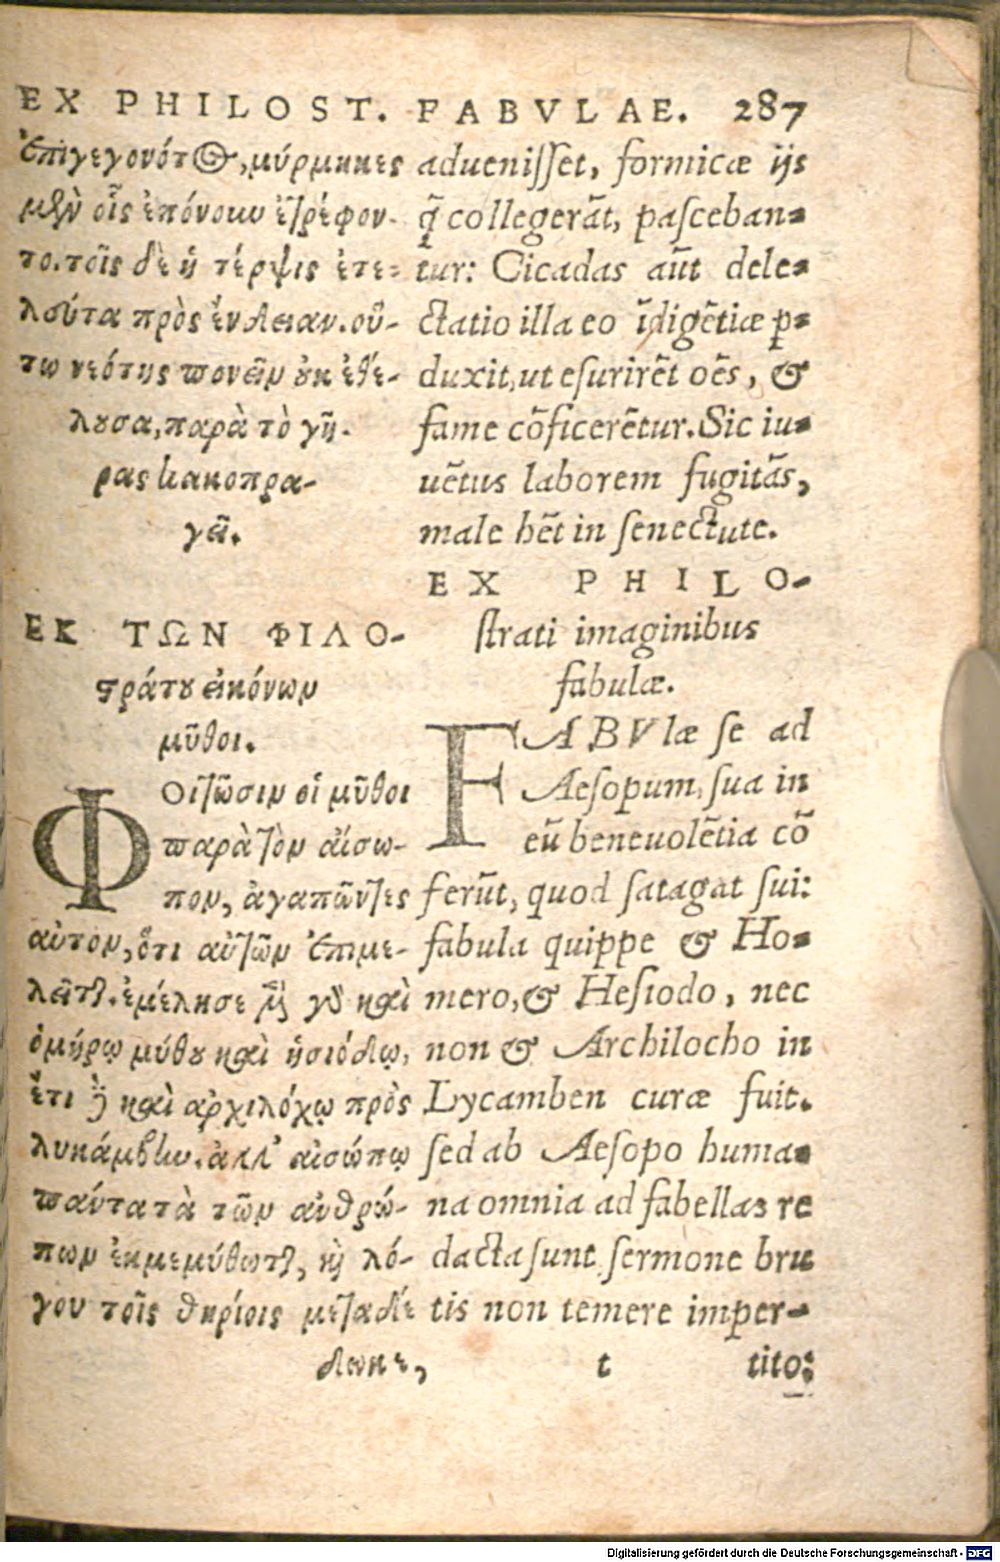 EX PHILOST. FABVLAE. 287
ἐπιγεγονότος, μύρμηκες
μὲν οἷς ἐπόνουν ἐτρέφον-
το. τοῖς δὲ ἡ τέρψις ἐτε-
λεύτα πρὸς ἔνδειαν. οὕ-
τω νεότης πονεῖν οὐκ ἐθέ-
λουσα, παρὰ τὸ γῆ-
ρας κακοπρα-
γεῖ.
ΕΚ ΤΩΝ ΦΙΛΟ-
στράτου εἰκόνων
μῦθοι.
ΦΟιτῶσιν οἱ μῦθοι
παρὰ τὸν αἴσω-
πον, ἀγαπῶντες
αὐτὸν, ὅτι αὐτῶν ἐπιμε-
λεῖται. ἐμέλησε μὲν γὰρ καὶ
ὁμήρῳ μύθου καὶ ἡσιόδῳ,
ἔτι δὲ καὶ ἀρχιλόχῳ πρὸς
λυκάμβην. ἀλλ' αἰσώπῳ
πάντα τὰ τῶν ἀνθρώ-
πων ἐκμεμύθωται, καὶ λό-
γου τοῖς θηρίοις μεταδέ
δωκε,
aduenisset, formicæ ijs
q̃ collegerãt, pasceban-
tur: Cicadas aũt dele-
ctatio illa eo ĩdigẽtiæ p-
duxit, ut esurirẽt oẽs, &
fame cõficerẽtur. Sic iu-
uẽtus laborem fugitãs,
male hẽt in senectute.
EX PHILO-
strati imaginibus
fabulæ.
FABVlæ se ad
Aesopum, sua in
eũ beneuolẽtia cõ
ferũt, quod satagat sui:
fabula quippe & Ho-
mero, & Hesiodo, nec
non & Archilocho in
Lycamben curæ fuit.
sed ab Aesopo huma-
na omnia ad fabellas re
dacta sunt sermone bru
tis non temere imper-
t tito:
Digitalisierung gefördert durch die Deutsche Forschungsgemeinschaft - DFG